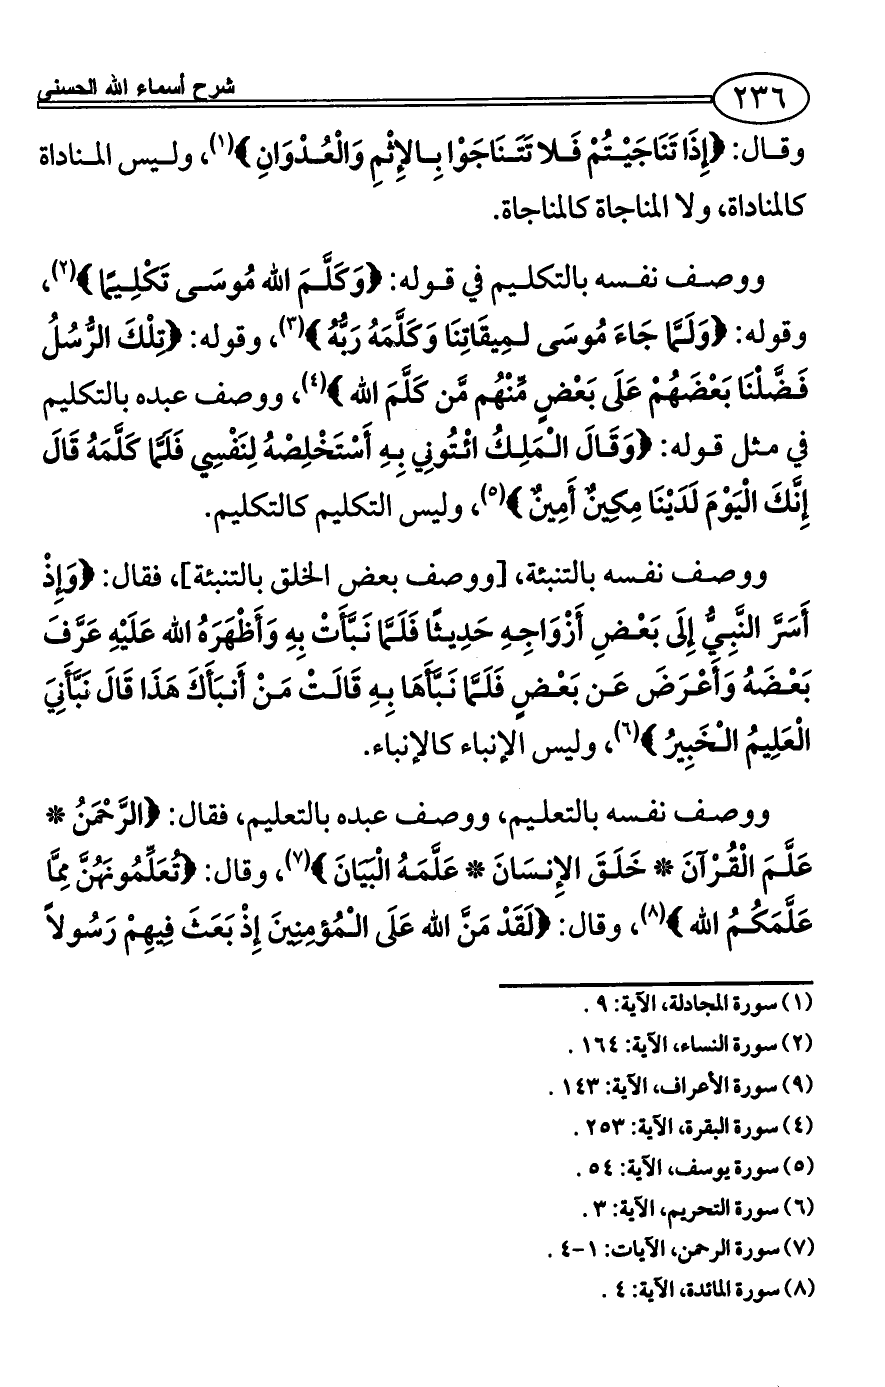 شرح أسماء الله الحسنى
٢٣٦
وقال: ﴿إِذَا تَنَاجَيْتُمْ فَلا تَتَنَاجَوْا بِالإِثْمِ وَالْعُدْوَانِ﴾(١)، وليس المناداة
كالمناداة، ولا المناجاة كالمناجاة.
ووصف نفسه بالتكليم في قوله: ﴿وَكَلَّمَ الله مُوسَى تَكْلِيمًا﴾(٢)،
وقوله: ﴿وَلَمَّا جَاءَ مُوسَى لِمِيقَاتِنَا وَكَلَّمَهُ رَبُّهُ﴾(٣)، وقوله: ﴿تِلْكَ الرُّسُلُ
فَضَّلْنَا بَعْضَهُمْ عَلَى بَعْضٍ مِّنْهُم مَّن كَلَّمَ الله﴾(٤)، ووصف عبده بالتكليم
في مثل قوله: ﴿وَقَالَ الْمَلِكُ ائْتُونِي بِهِ أَسْتَخْلِصْهُ لِنَفْسِي فَلَمَّا كَلَّمَهُ قَالَ
إِنَّكَ الْيَوْمَ لَدَيْنَا مِكِينٌ أَمِينٌ﴾(٥)، وليس التكليم كالتكليم.
ووصف نفسه بالتنبئة، [ووصف بعض الخلق بالتنبئة]، فقال: ﴿وَإِذْ
أَسَرَّ النَّبِيُّ إِلَى بَعْضِ أَزْوَاجِهِ حَدِيثًا فَلَمَّا نَبَّأَتْ بِهِ وَأَظْهَرَهُ الله عَلَيْهِ عَرَّفَ
بَعْضَهُ وَأَعْرَضَ عَن بَعْضٍ فَلَمَّا نَبَّأَهَا بِهِ قَالَتْ مَنْ أَنبَأَكَ هَذَا قَالَ نَبَّأَنِيَ
الْعَلِيمُ الْخَبِيرُ﴾(٦)، وليس الإنباء كالإنباء.
ووصف نفسه بالتعليم، ووصف عبده بالتعليم، فقال: ﴿الرَّحْمَنُ *
عَلَّمَ الْقُرْآنَ * خَلَقَ الإِنسَانَ * عَلَّمَهُ الْبَيَانَ﴾(٧)، وقال: ﴿تُعَلِّمُونَهُنَّ مِمَّا
عَلَّمَكُمُ الله﴾(٨)، وقال: ﴿لَقَدْ مَنَّ الله عَلَى الْمُؤمِنِينَ إِذْ بَعَثَ فِيهِمْ رَسُولاً
(١) سورة المجادلة، الآية: ٩ .
(٢) سورة النساء، الآية: ١٦٤ .
(٩) سورة الأعراف، الآية: ١٤٣ .
(٤) سورة البقرة، الآية: ٢٥٣ .
(٥) سورة يوسف، الآية: ٥٤ .
(٦) سورة التحريم، الآية: ٣ .
(٧) سورة الرحمن، الآيات: ١-٤ .
(٨) سورة المائدة، الآية: ٤ .